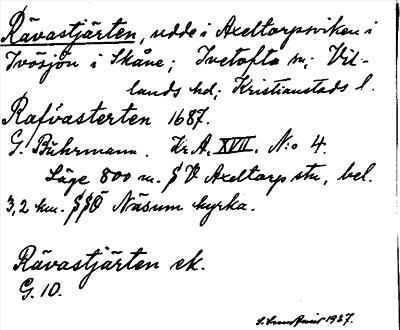 Rävastjärten, udde i Axeltorpsviken i
Ivösjön i Skåne; Ivetofta sn; Vil-
lands hd; Kristianstads l.
Rafvasterten 1687.
G. Buhrmann. Kr.A. XVII. N:o 4.
Läge 800 m. § V Axeltorp stn, bel.
3,2 km. §§Ö Näsum kyrka.
Rävastjärten ek.
G. 10.
1927.